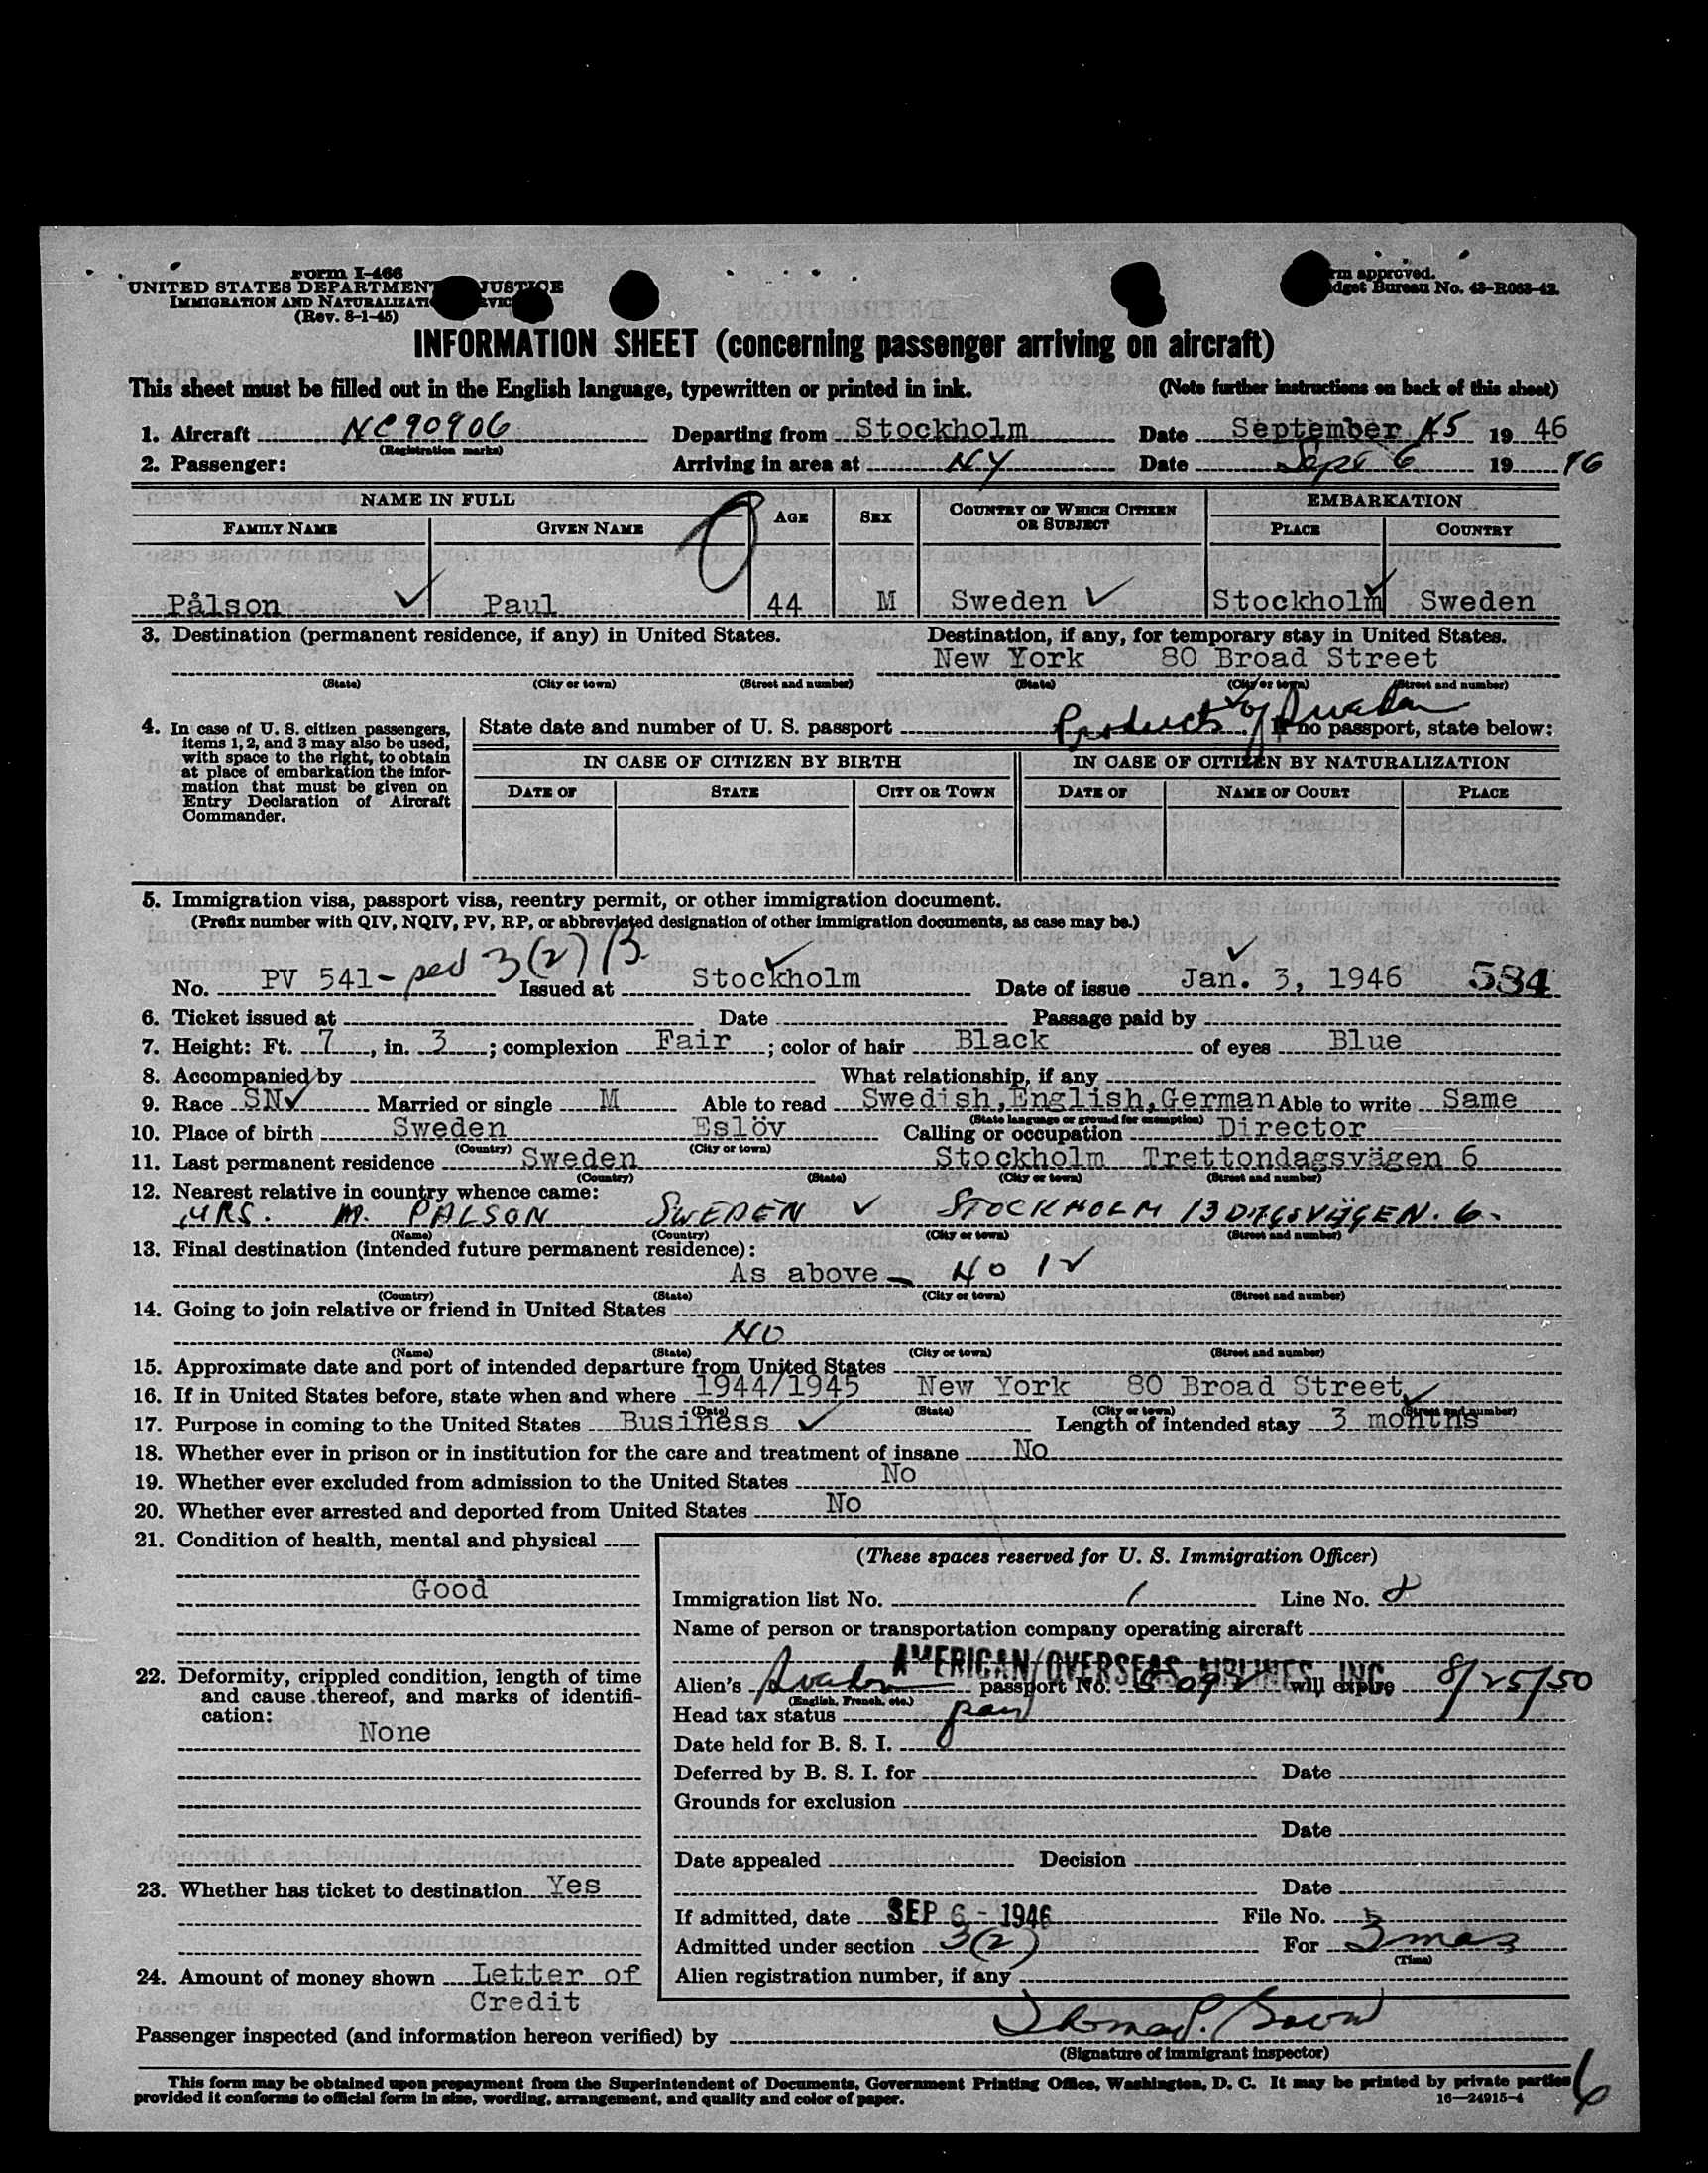 Form I-466
UNITED STATES DEPARTMENT JUSTICE
IMMIGRATION AND NATURALIZATI
(Rev. 8-1-45)
rm approved.
dget Bureau No. 43-R063-42.
INFORMATION SHEET (concerning passenger arriving on aircraft)
This sheet must be filled out in the English language, typewritten or printed in ink. (Note further instructions on back of this sheet)
1. Aircraft NC90906 Departing from Stockholm Date September 5 1946
(Registration marks)
2. Passenger: Arriving in area at NY Date Sept 6 19 46
NAME IN FULL AGE SEX COUNTRY OF WHICH CITIZEN OR SUBJECT EMBARKATION
FAMILY NAME GIVEN NAME PLACE COUNTRY
Pålson Paul 44 M Sweden Stockholm Sweden
3. Destination (permanent residence, if any) in United States. Destination, if any, for temporary stay in United States.
New York 80 Broad Street
(State) (City or town) (Street and number) (State) (City or town) (Street and number)
4. In case of U. S. citizen passengers, items 1, 2, and 3 may also be used, with space to the right, to obtain at place of embarkation the information that must be given on Entry Declaration of Aircraft Commander.
State date and number of U. S. passport Products of Sweden If no passport, state below:
IN CASE OF CITIZEN BY BIRTH IN CASE OF CITIZEN BY NATURALIZATION
DATE OF STATE CITY OR TOWN DATE OF NAME OF COURT PLACE
5. Immigration visa, passport visa, reentry permit, or other immigration document.
(Prefix number with QIV, NQIV, PV, RP, or abbreviated designation of other immigration documents, as case may be.)
No. PV 541- 3(2) B Issued at Stockholm Date of issue Jan. 3, 1946 584
6. Ticket issued at Date Passage paid by
7. Height: Ft. 7, in. 3; complexion Fair; color of hair Black of eyes Blue
8. Accompanied by What relationship, if any
9. Race SN Married or single M Able to read Swedish,English,German Able to write Same
(State language or ground for exemption)
10. Place of birth Sweden Eslöv Calling or occupation Director
(Country) (City or town)
11. Last permanent residence Sweden Stockholm Trettondagsvägen 6
(Country) (State) (City or town) (Street and number)
12. Nearest relative in country whence came:
MRS. M. PALSON SWEDEN STOCKHOLM 13 DAGSVÄGEN. 6.
(Name) (Country) (City or town) (Street and number)
13. Final destination (intended future permanent residence):
As above
(Country) (State) (City or town) (Street and number)
14. Going to join relative or friend in United States
NO
(Name) (State) (City or town) (Street and number)
15. Approximate date and port of intended departure from United States
16. If in United States before, state when and where 1944/1945 New York 80 Broad Street
(Date) (State) (City or town) (Street and number)
17. Purpose in coming to the United States Business Length of intended stay 3 months
18. Whether ever in prison or in institution for the care and treatment of insane No
19. Whether ever excluded from admission to the United States No
20. Whether ever arrested and deported from United States No
21. Condition of health, mental and physical
Good
22. Deformity, crippled condition, length of time and cause thereof, and marks of identification:
None
23. Whether has ticket to destination Yes
24. Amount of money shown Letter of
Credit
(These spaces reserved for U. S. Immigration Officer)
Immigration list No. 1 Line No. 8
Name of person or transportation company operating aircraft
AMERICAN OVERSEAS AIRLINES, INC.
Alien's passport No. will expire 8/25/50
(English, French, etc.)
Head tax status
Date held for B. S. I.
Deferred by B. S. I. for Date
Grounds for exclusion
Date
Date appealed Decision
Date
If admitted, date SEP 6 - 1946 File No.
Admitted under section 3(2) For 3 mos
(Time)
Alien registration number, if any
Passenger inspected (and information hereon verified) by
(Signature of immigrant inspector)
This form may be obtained upon prepayment from the Superintendent of Documents, Government Printing Office, Washington, D. C. It may be printed by private parties
provided it conforms to official form in size, wording, arrangement, and quality and color of paper. 16—24915-4
6